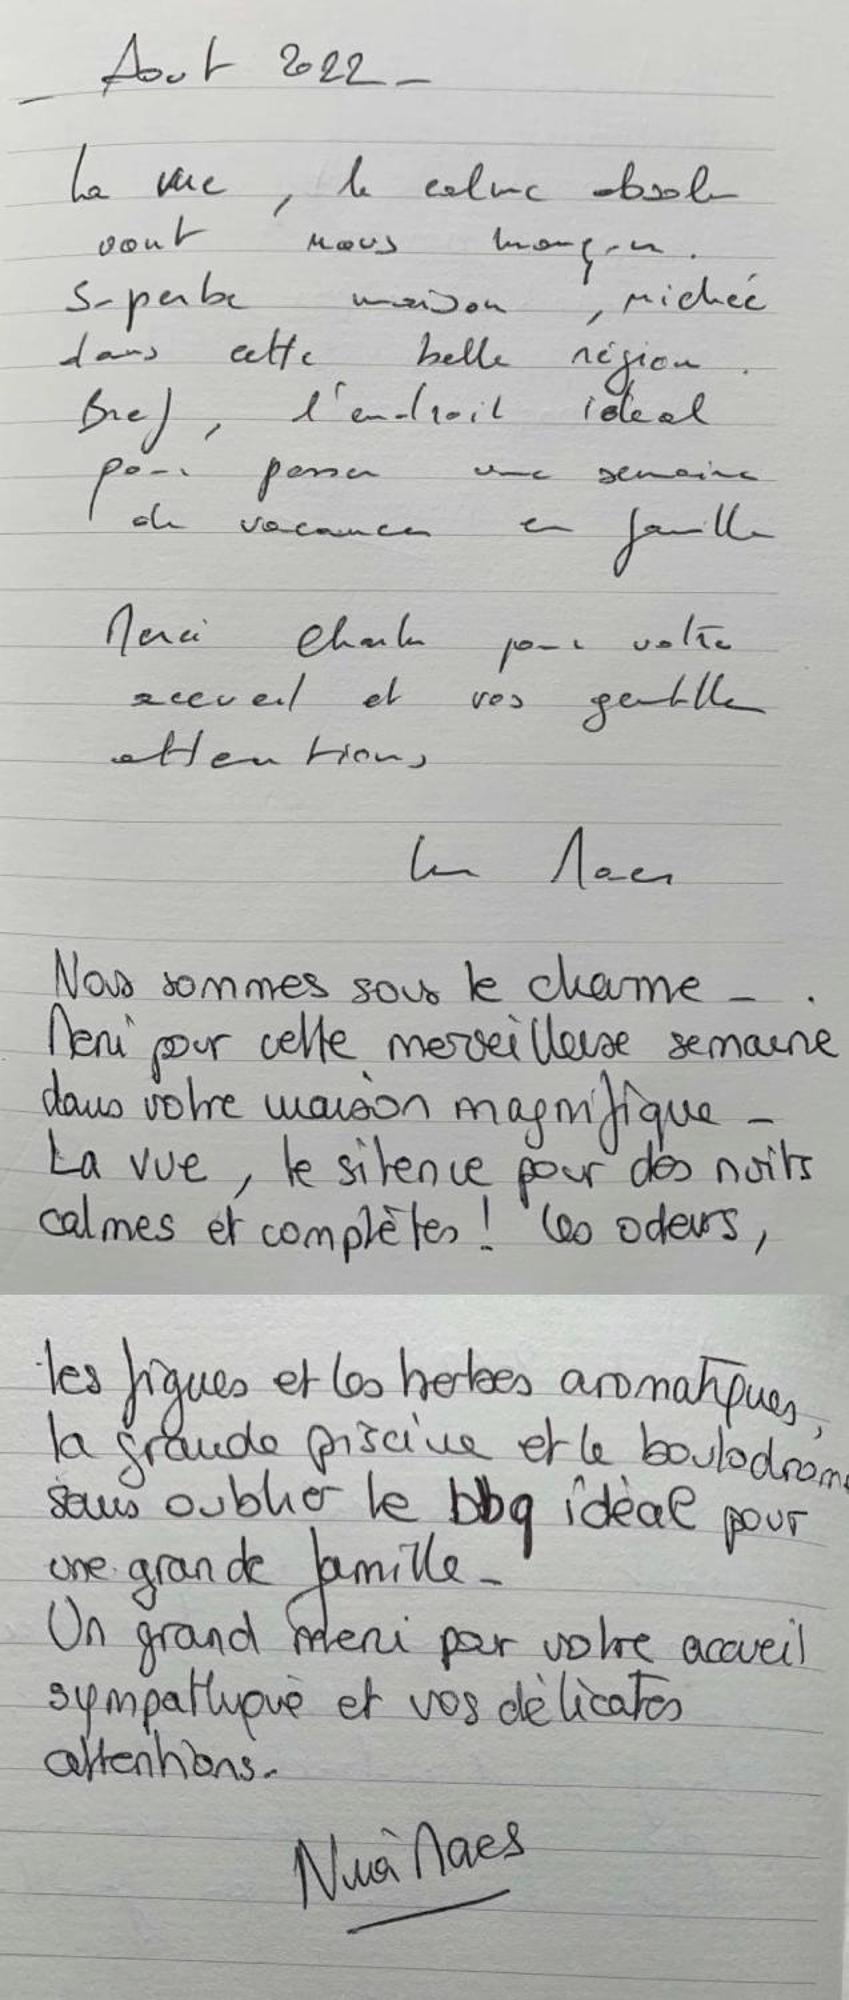 _ Aout 2022_
La vue, le calme absolu
vont nous manquer.
Superbe maison, nichée
dans cette belle région.
Bref, l'endroit idéal
pour passer une semaine
de vacances en famille
Merci Charles pour votre
accueil et vos gentilles
attentions
Maes
Nous sommes sous le charme - .
Merci pour cette merveilleuse semaine
dans votre maison magnifique -
La vue, le silence pour des nuits
calmes et complètes! les odeurs,
les figues et les herbes aromatiques,
la grande piscine et le boulodrome
sans oublier le bbq idèal pour
une grande famille -
Un grand merci pour votre accueil
sympathique et vos dèlicates
attentions.
Maes